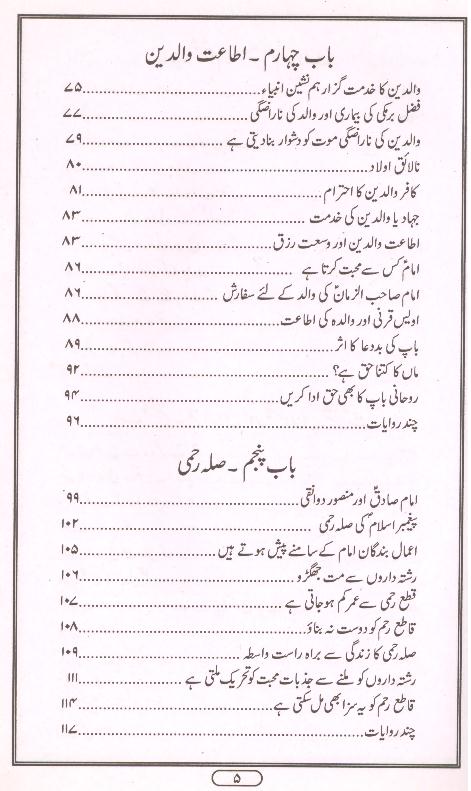 باب چہارم ۔ اطاعت والدین
والدین کا خدمت گزار ہم نشین انبیاء ........ ۷۵
فضل برمکی کی بیماری اور والد کی ناراضگی ........ ۷۷
والدین کی ناراضگی موت کو دشوار بنا دیتی ہے ........ ۷۹
نالائق اولاد ........ ۸۰
کافر والدین کا احترام ........ ۸۱
جہاد یا والدین کی خدمت ........ ۸۳
اطاعت والدین اور وسعت رزق ........ ۸۳
امامؑ کس سے محبت کرتا ہے ........ ۸۶
امام صاحب الزمانؑ کی والد کے لئے سفارش ........ ۸۶
اویس قرنی اور والدہ کی اطاعت ........ ۸۸
باپ کی بددعا کا اثر ........ ۸۹
ماں کا کتنا حق ہے؟ ........ ۹۲
روحانی باپ کا بھی حق ادا کریں ........ ۹۴
چند روایات ........ ۹۶
باب پنجم ۔ صلہ رحمی
امام صادقؑ اور منصور دوانقی ........ ۹۹
پیغمبر اسلامؐ کی صلہ رحمی ........ ۱۰۲
اعمال بندگان امام کے سامنے پیش ہوتے ہیں ........ ۱۰۵
رشتہ داروں سے مت جھگڑو ........ ۱۰۶
قطع رحمی سے عمر کم ہو جاتی ہے ........ ۱۰۷
قاطع رحم کو دوست نہ بناؤ ........ ۱۰۸
صلہ رحمی کا زندگی سے براہ راست واسطہ ........ ۱۰۹
رشتہ داروں کو ملنے سے جذبات محبت کو تحریک ملتی ہے ........ ۱۱۱
قاطع رحم کو یہ سزا بھی مل سکتی ہے ........ ۱۱۴
چند روایات ........ ۱۱۷
۵